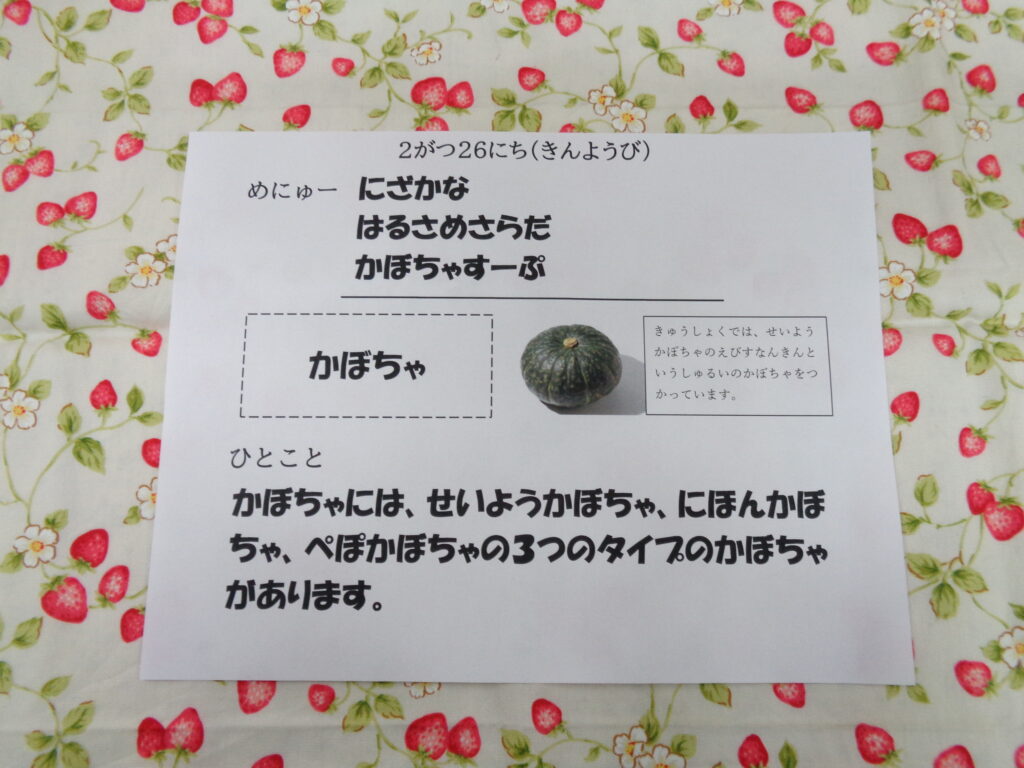 2がつ26にち(きんようび)
めにゅー にざかな
はるさめさらだ
かぼちゃすーぷ
かぼちゃ
きゅうしょくでは、せいよう
かぼちゃのえびすなんきんと
いうしゅるいのかぼちゃをつ
かっています。
ひとこと
かぼちゃには、せいようかぼちゃ、にほんかぼ
ちゃ、ぺぽかぼちゃの3つのタイプのかぼちゃ
があります。